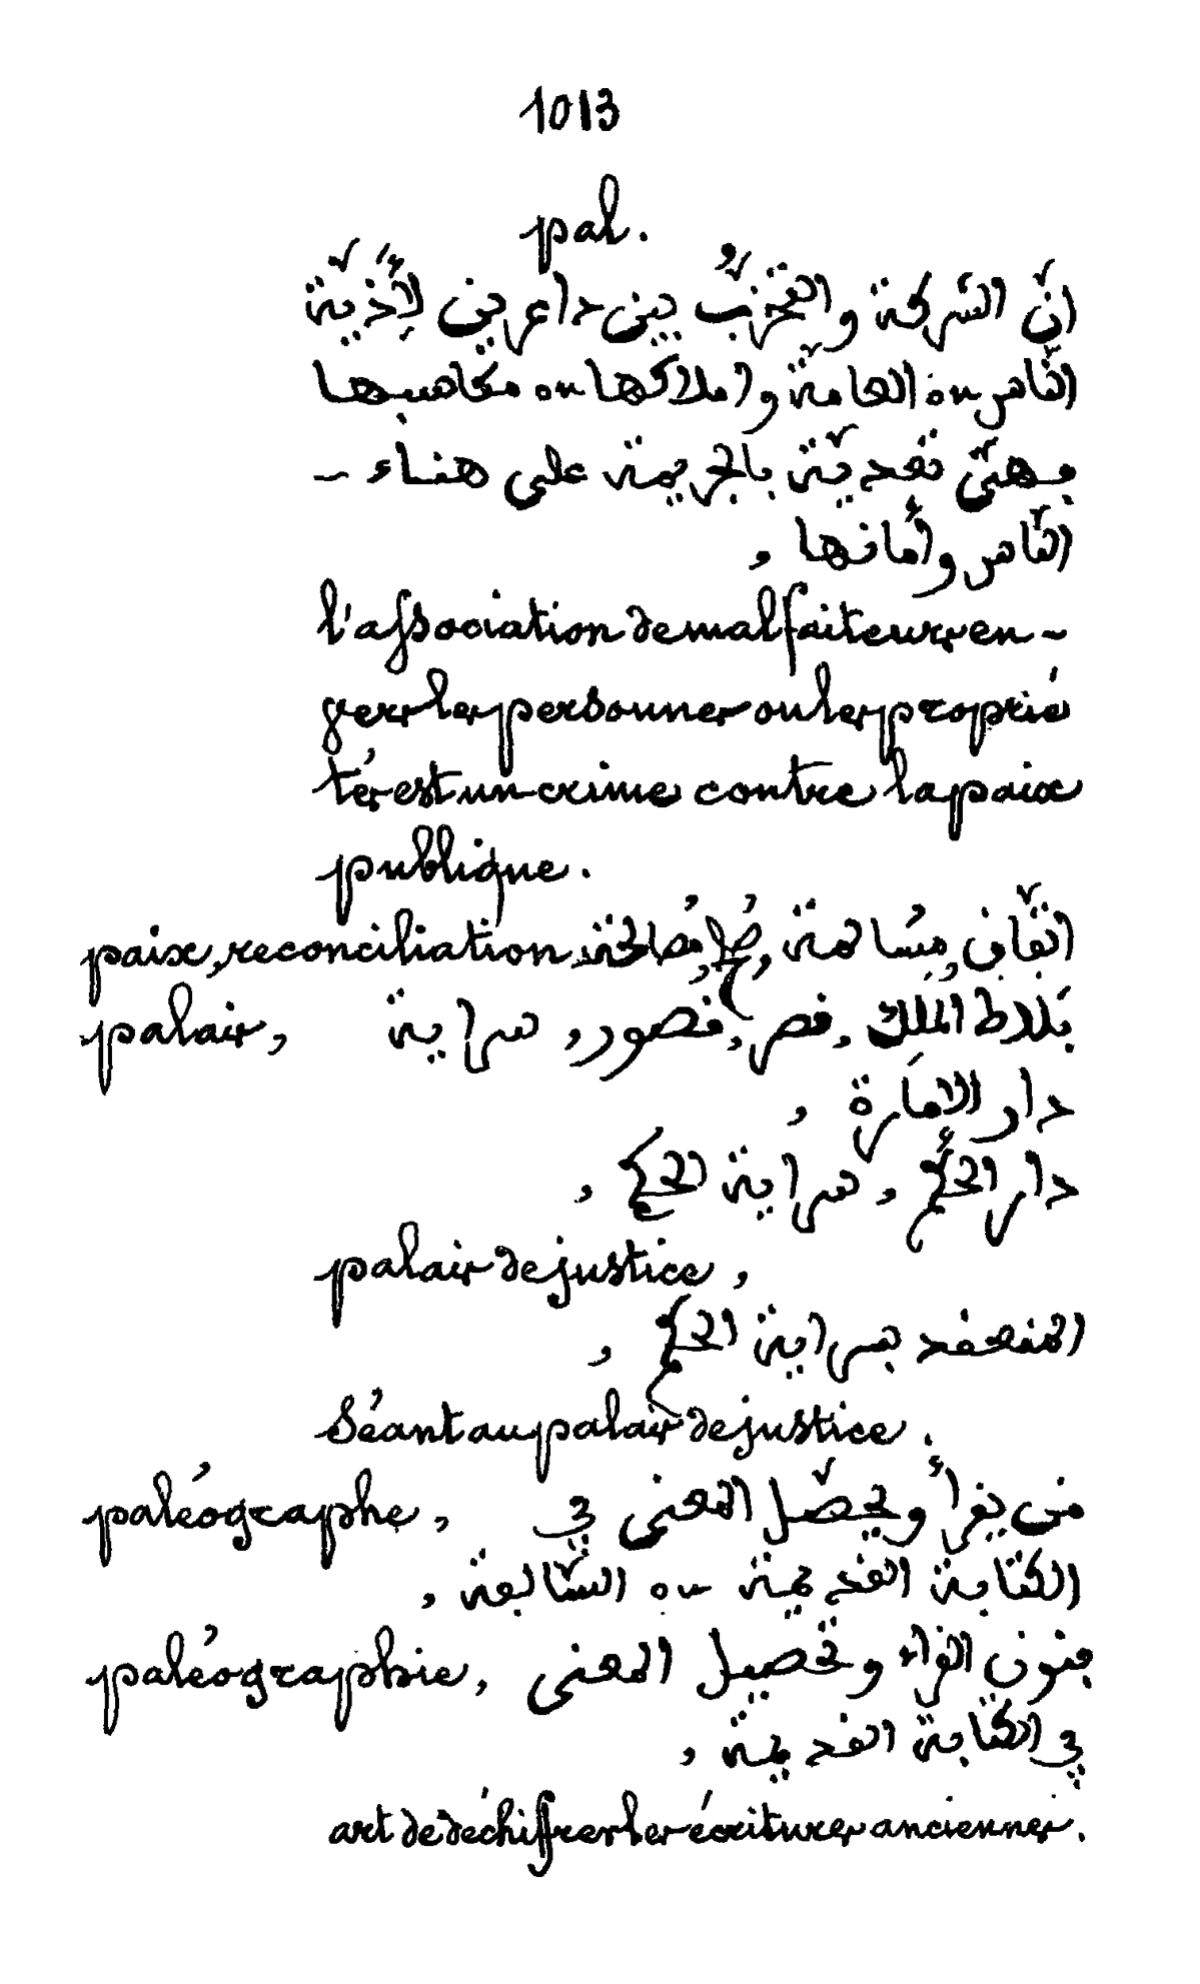 1013
pal.
انّ الشركة والتحزّبُ بين داعرين لأذيّة
النّاس ou العامّة واملاكها ou مكاسبها
فهى تعديّة بالجريمة على هناء -
النّاس وأمانها ,
l'association de malfaiteurs en-
gers les personnes ou les proprié
tés est un crime contre la paix
publique.
paix, reconciliation, اتّفاق, مُسالمة, صُلح, مُصالحة
palais, بَلاط المَلِك, قصر, قُصور, سراية
دار الامَارة ,
دار الحكم , سراية الحكم ,
palais de justice ,
المنعقد بسراية الحكم ,
Séant au palais de justice.
paléographe, من يقرأ ويحصّل المعنى في
الكتابة القديمة ou السّابعة ,
paléographie, فنون القراء وتحصيل المعنى
في الكتابة القديمة ,
art de déchiffrer les écritures anciennes.